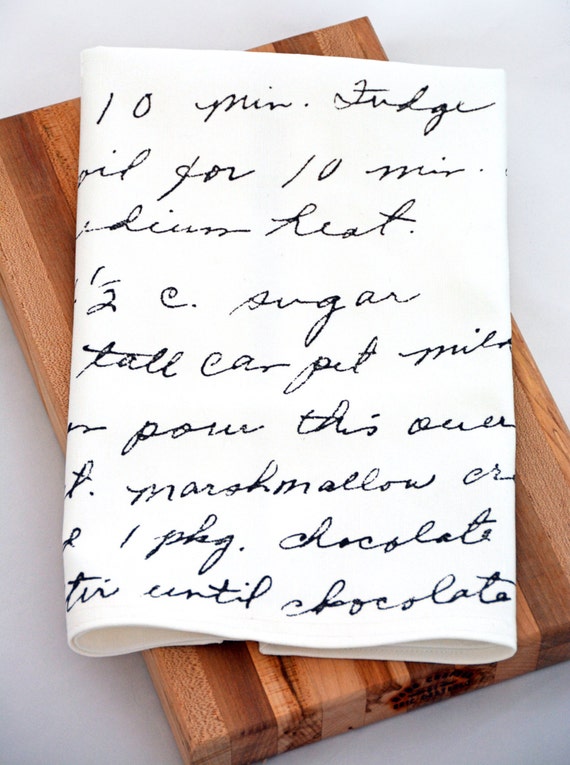 10 min. Fudge
oil for 10 min.
edium heat.
1/2 c. sugar
tall can pet milk
n pour this over
t. marshmallow cr
1 pkg. chocolate
tir until chocolate